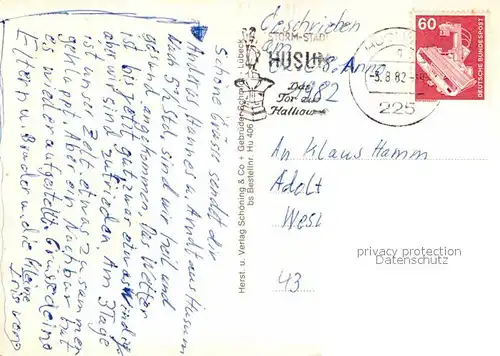 Schöne Grüsse sendet dir
Andreas Hannes u. Arndt aus Husum
Nach 5½ Std. sind wir heil und
gesund angekommen. Das Wetter
ist bis jetzt gut, zwar etwas windig
aber wir sind zufrieden. Am 3 Tage
ist unser Zelt etwas zusammen
geklappt. Aber ein Nachbar hat
es wieder aufgestellt. Grüsse deine
Eltern u. Bruder u. die kleine
Herst. u. Verlag Schöning & Co + Gebrüder Schmidt, Lübeck
bs Bestellnr. Hu 406
Geschrieben
am
8. Anno
1982
STORM-STADT
HUSUM
Das
Tor zur
Hallig
-5.8.82
225
60
DEUTSCHE BUNDESPOST
An Klaus Hamm
Adolf
West
43
privacy protection
Datenschutz